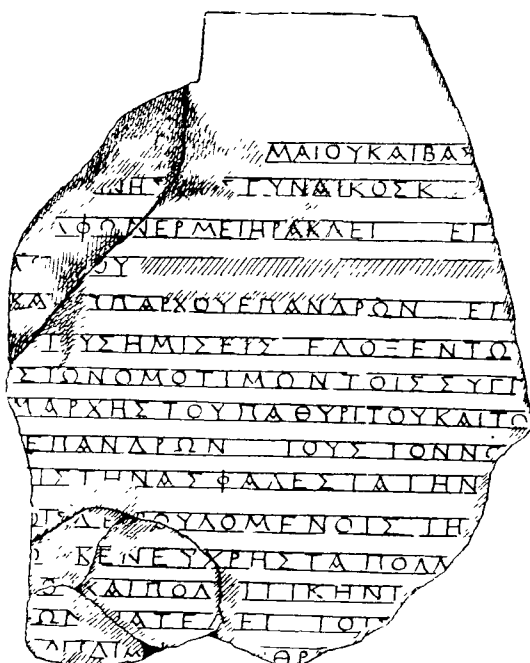 ΜΑΙΟΥΚΑΙΒΑΣ
ΩΗ ΓΥΝΑΙΚΟΣΚ
ΔΦΩΝΕΡΜΕΙΗΡΑΚΛΕΙ ΕΠ
ΟΥ
ΚΑ ΥΠΑΡΧΟΥΕΠΑΝΔΡΩΝ ΕΠ
ΥΣΗΜΙΣΕΙΣ ΕΔΟΞΕΝΤΩ
ΣΙΩΝΟΜΟΤΙΜΩΝΤΟΙΣΣΥΓΓ
ΜΑΡΧΗΣΤΟΥΠΑΘΥΡΙΤΟΥΚΑΙΤΟ
ΕΠΑΝΔΡΩΝ ΤΟΥΣΤΟΝΝΟ
ΙΣΤΗΝΑΣΦΑΛΕΣΤΑΤΗΝ
ΟΙΣΔΕΒΟΥΛΟΜΕΝΟΙΣΤΗ
ΚΕΝΕΥΧΡΗΣΤΑΠΟΛΛ
ΚΑΙΠΟΛΙΤΙΚΗΝ
ΑΤΕΛΕΙ ΤΟΙΣ
ΘΡ